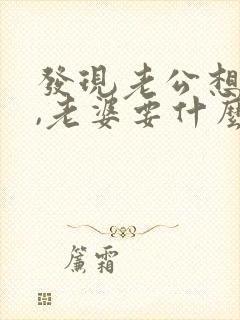 發現老公想
,老婆要什麼
簾霜